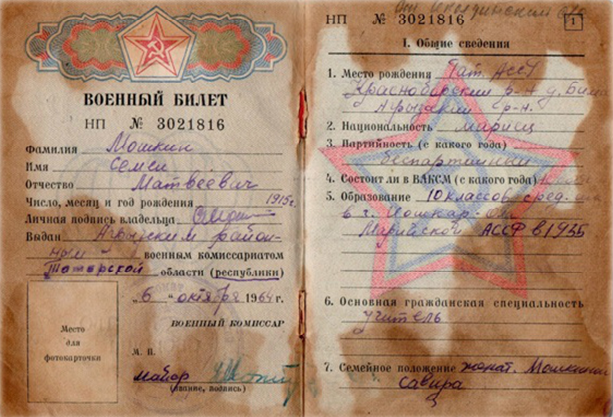 ВОЕННЫЙ БИЛЕТ
НП № 3021816
Фамилия Мошкин
Имя Семен
Отчество Матвеевич
Число, месяц и год рождения 1915г.
Личная подпись владельца
Выдан Агрызским район-
ным военным комиссариатом
Татарской области (республики)
„6„ октября 1964 г.
ВОЕННЫЙ КОМИССАР
Место
для
фотокарточки
М. П.
майор
(звание, подпись)
НП № 3021816
1
I. Общие сведения
1. Место рождения Тат. АССР
Красноборский р-н д.
Агрызский р-н.
2. Национальность мариец
3. Партийность (с какого года)
беспартийный
4. Состоит ли в ВЛКСМ (с какого года)
5. Образование 10 классов сред.
в г. Йошкар-Ола
Марийской АССР в 1935
6. Основная гражданская специальность
учитель
7. Семейное положение женат. Мошкина